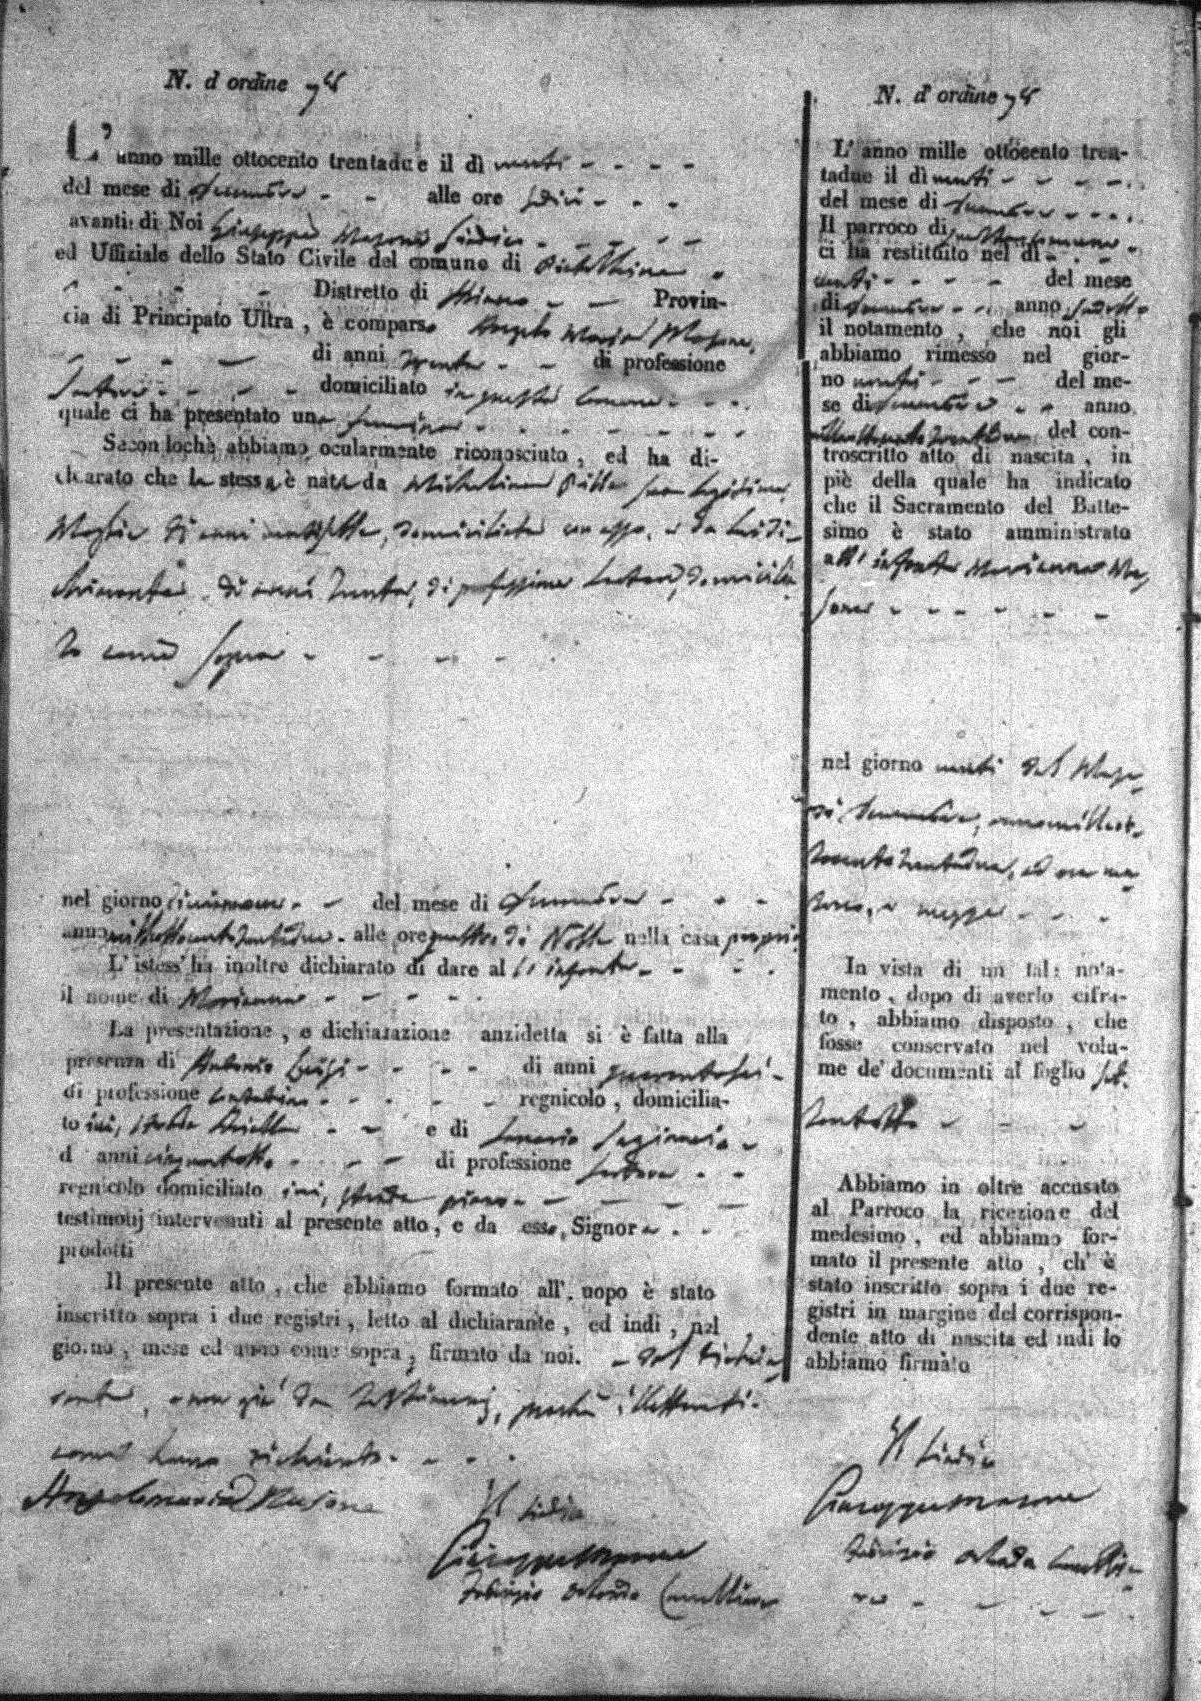 N. d'ordine 78
L'anno mille ottocento trentadue il dì venti
del mese di Decembre alle ore sedici
avanti di Noi Giuseppe Masone Sindico
ed Uffiziale dello Stato Civile del comune di
Distretto di Ariano Provin-
cia di Principato Ultra, è comparso Angelo Maria Masone,
di anni trenta di professione
domiciliato in questo Comune
quale ci ha presentato una femina
Secondochè abbiamo ocularmente riconosciuto, ed ha di-
chiarato che la stessa è nata da sua legitima
Moglie di anni domiciliata con esso, e da lui di-
chiarante di anni trenta, di professione domicilia
to come sopra
nel giorno del mese di Decembre
anno milleottocentotrentadue alle ore quattro di Notte nella casa propria
L'istess' ha inoltre dichiarato di dare al la infanta
il nome di Marianna
La presentazione, e dichiarazione anzidetta si è fatta alla
presenza di Antonio di anni quarantasei
di professione regnicolo, domicilia-
to ivi, strada e di
di anni cinquantotto di professione
regnicolo domiciliato ivi, strada piano
testimonj intervenuti al presente atto, e da esso Signor
prodotti
Il presente atto, che abbiamo formato all'uopo è stato
inscritto sopra i due registri, letto al dichiarante, ed indi, nel
giorno, mese ed anno come sopra, firmato da noi. e dal dichia
rante, e non già da testimonj, perchè illetterati
come hanno dichiarato
Angelomaria Masone
Il Sindico
Giuseppe Masone
N. d'ordine 78
L'anno mille ottocento tren-
tadue il dì venti
del mese di Decembre
Il parroco di
ci ha restituito nel dì
venti del mese
di Decembre anno sudetto
il notamento, che noi gli
abbiamo rimesso nel gior-
no venti del me-
se di Decembre anno
milleottocentotrentadue del con-
troscritto atto di nascita, in
piè della quale ha indicato
che il Sacramento del Batte-
simo è stato amministrato
all' infanta Marianna Ma
sone
nel giorno venti del Mese
di Decembre, anno milleot-
tocentotrentadue, ad ore
e mezza
In vista di un tale nota-
mento, dopo di averlo cifra-
to, abbiamo disposto, che
fosse conservato nel volu-
me de' documenti al foglio set-
tantotto
Abbiamo in oltre accusato
al Parroco la ricezione del
medesimo, ed abbiamo for-
mato il presente atto, ch' è
stato inscritto sopra i due re-
gistri in margine del corrispon-
dente atto di nascita ed indi lo
abbiamo firmato
Il Sindico
Giuseppe Masone